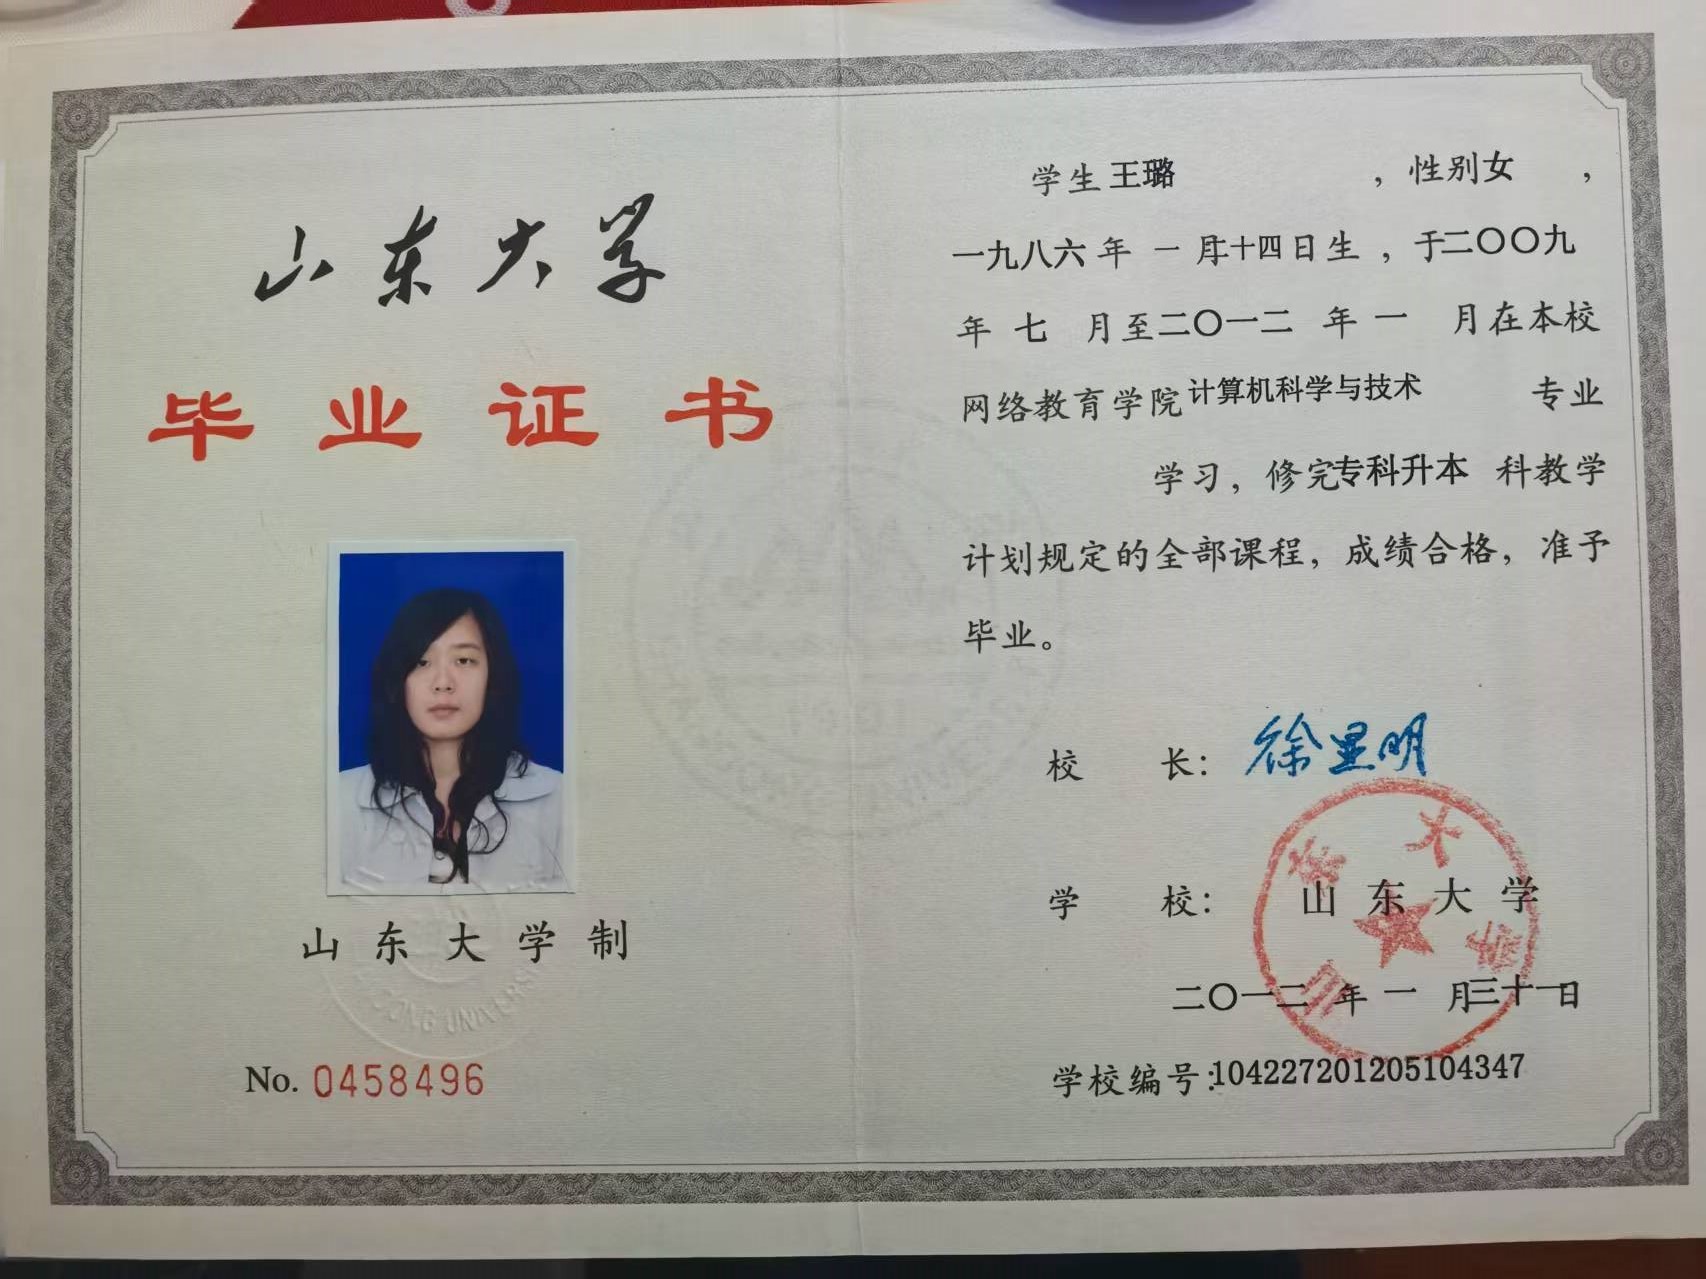 山东大学
毕业证书
山东大学制
No. 0458496
学生 王璐 ，性别女 ，
一九八六 年 一 月二十四日生 ，于二〇〇九
年 七 月至二〇一二 年 一 月在本校
网络教育学院 计算机科学与技术 专业
学习，修完专科升本 科教学
计划规定的全部课程，成绩合格，准予
毕业。
校 长： 徐显明
学 校： 山东大学
山东大学
二〇一二 年 一 月三十一日
学校编号：104227201205104347